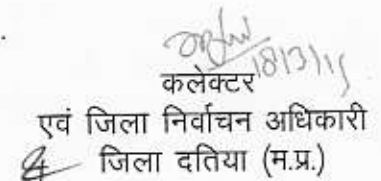 18/3/15
कलेक्टर
एवं जिला निर्वाचन अधिकारी
जिला दतिया (म.प्र.)